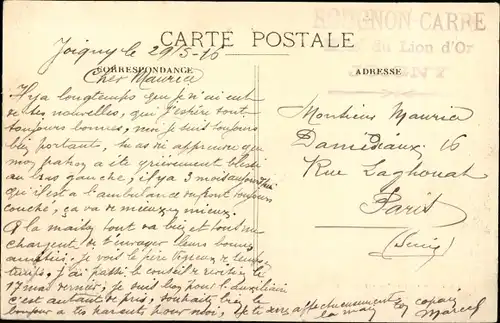 CARTE POSTALE
CORRESPONDANCE
ADRESSE
BOUGNON CARRE
du Lion d'Or
JOIGNY
Joigny le 29/5-16
Cher Maurice
Il y a longtemps que je n'ai eut
de tes nouvelles, que j'espère sont
toujours bonnes, moi je suis toujours
bien portant, tu as du apprendre que
mon papa a été grièvement blessé
au bras gauche, il y a 3 mois aujourd'hui
qu'il est a l'ambulance du front toujours
couché, ça va de mieux en mieux.
A la maison tout va bien et tous me
chargent de t'envoyer leurs bonnes
amitiés. je vois le père de temps
temps. J'ai passé le conseil de révision le
17 mai dernier; je suis bon pour l'auxiliaire
c'est autant de pris, souhaits bien le
bonjour a tes parents pour moi, je te serre affectueusement
la main ton copain
Marcel
Monsieur Maurice
Damédiaux 16
Rue Laghouat
Paris
(Seine)